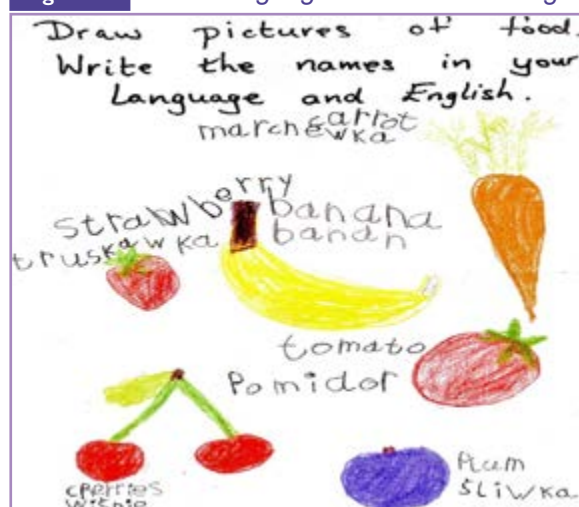 Draw pictures of food.
Write the names in your
Language and English.
carrot
marchewka
strawberry
truskawka
banana
banan
tomato
Pomidor
cherries
wiśnie
Plum
śLiwka